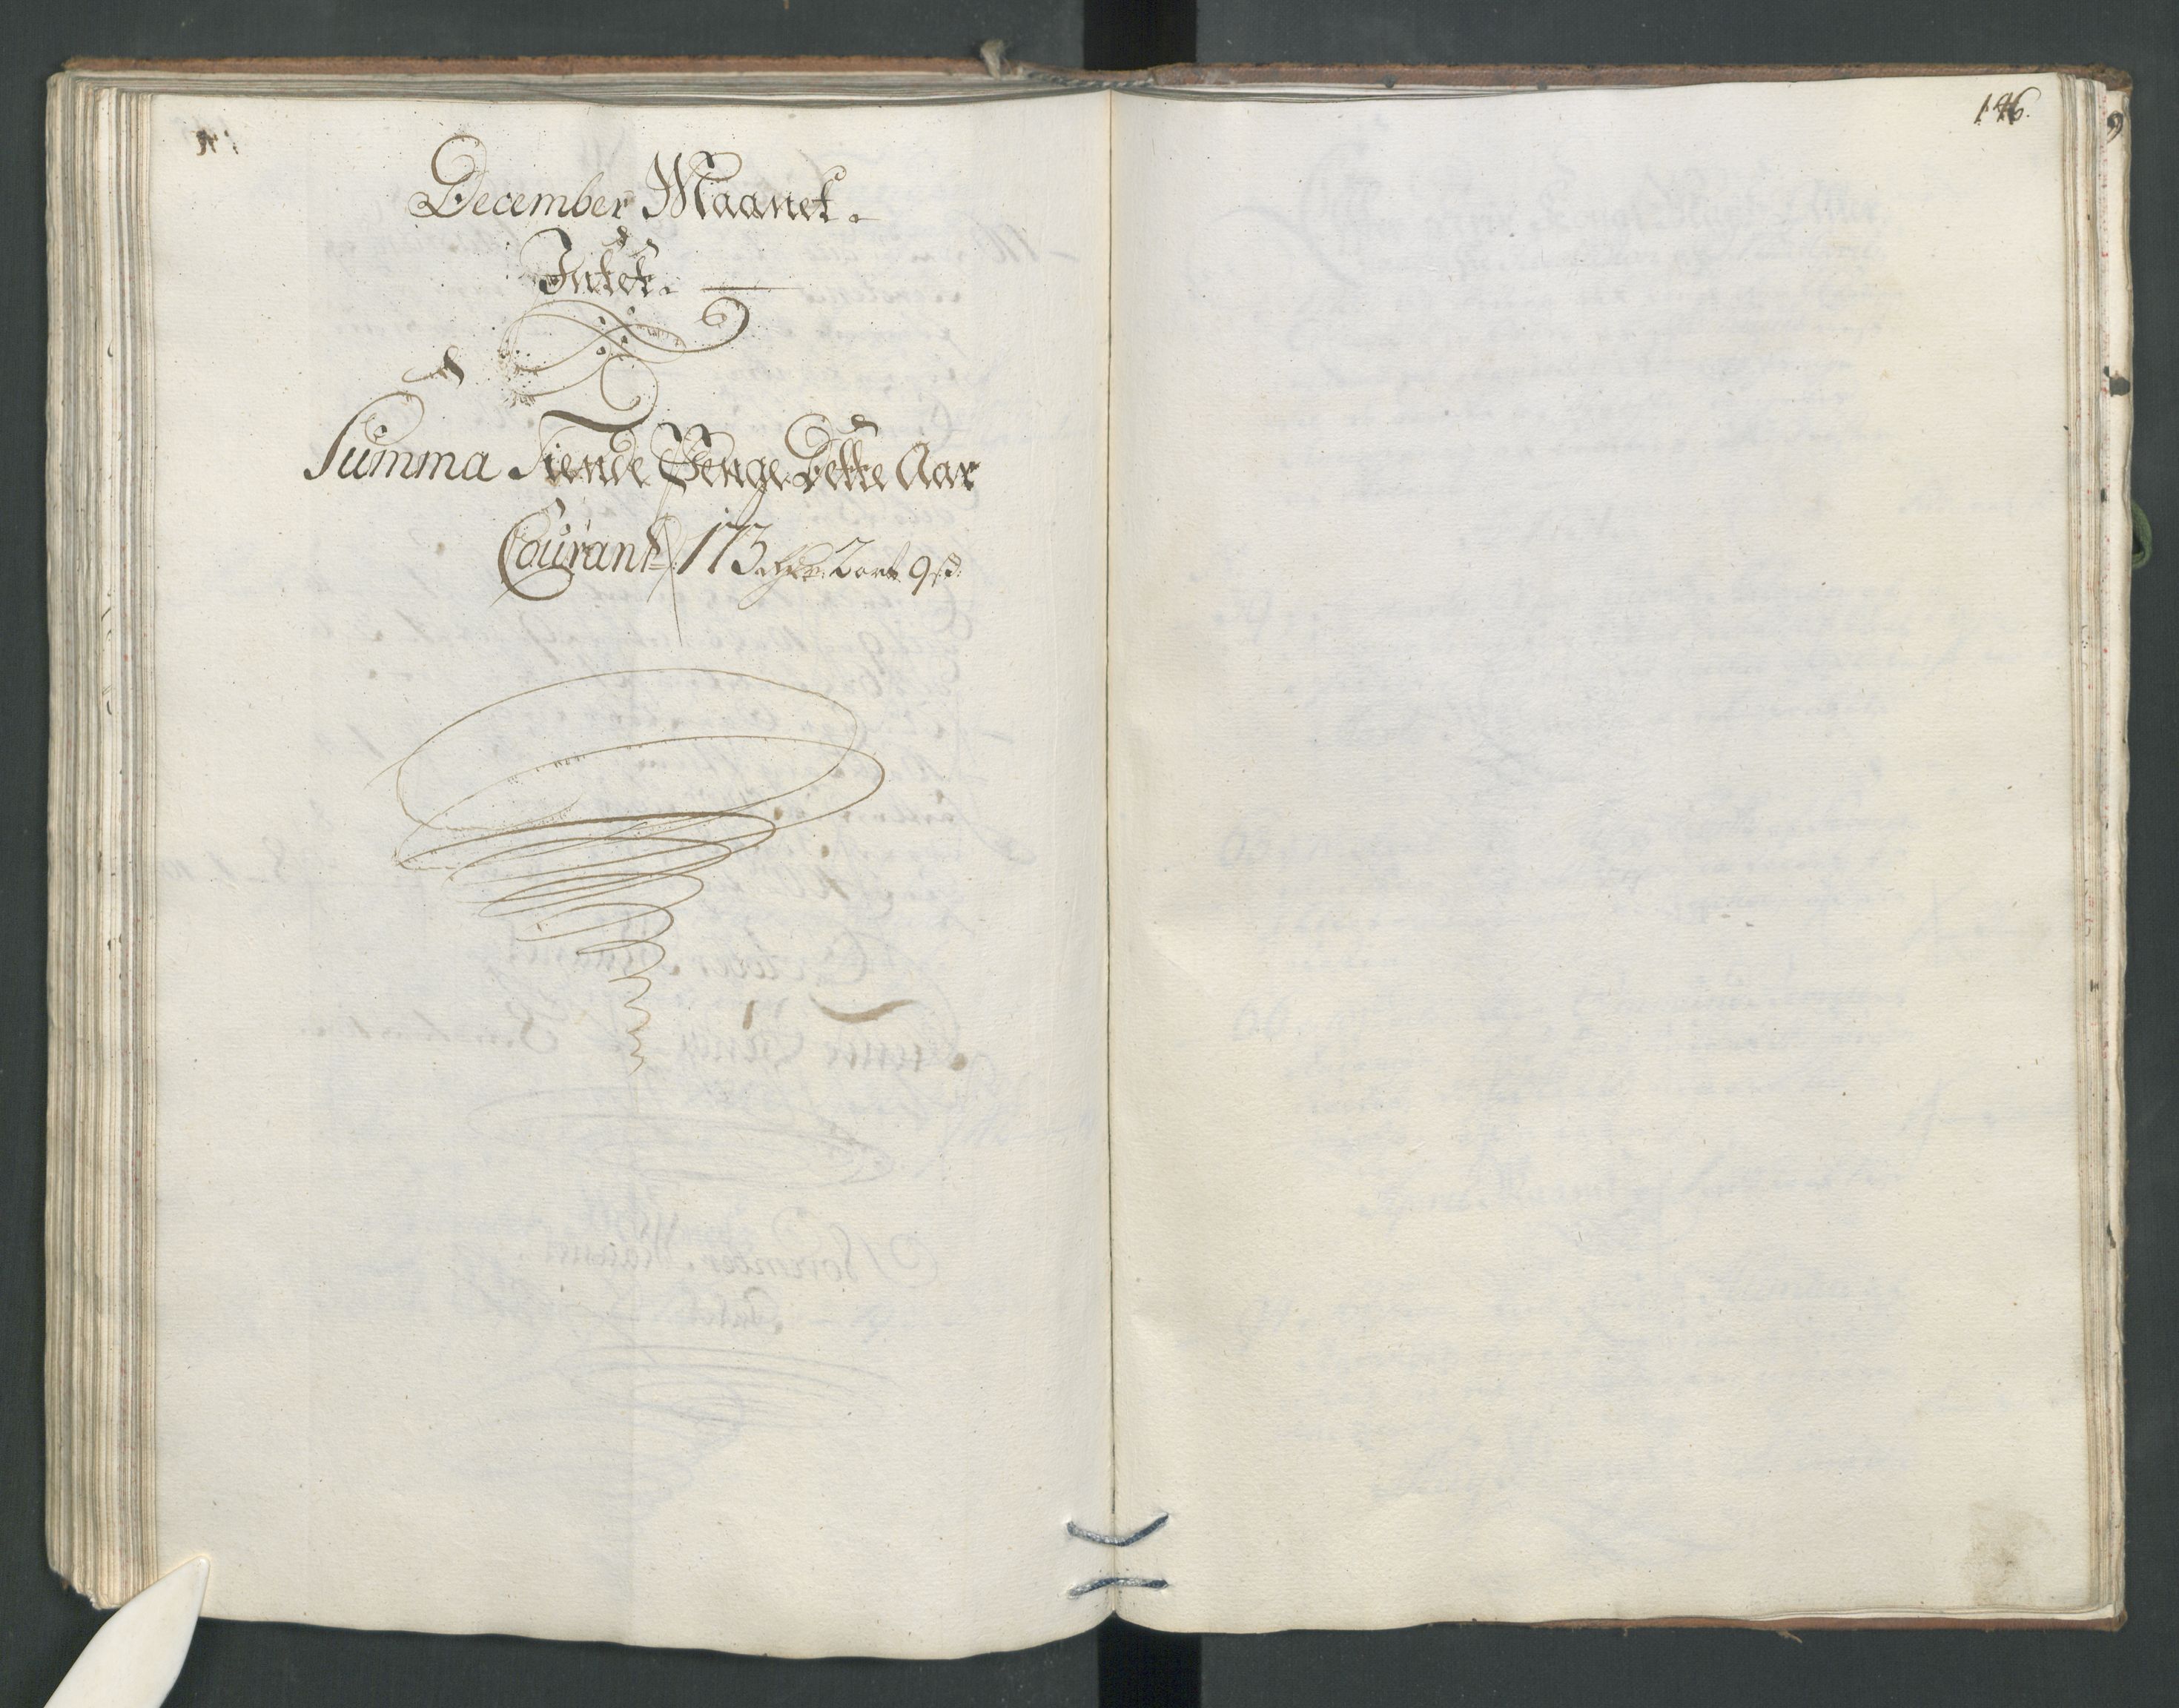 December Maanet.
Intet.
Summa Tiende Penge Dette Aar
Courant 173 Rdr 2 ort 9 ß
146.